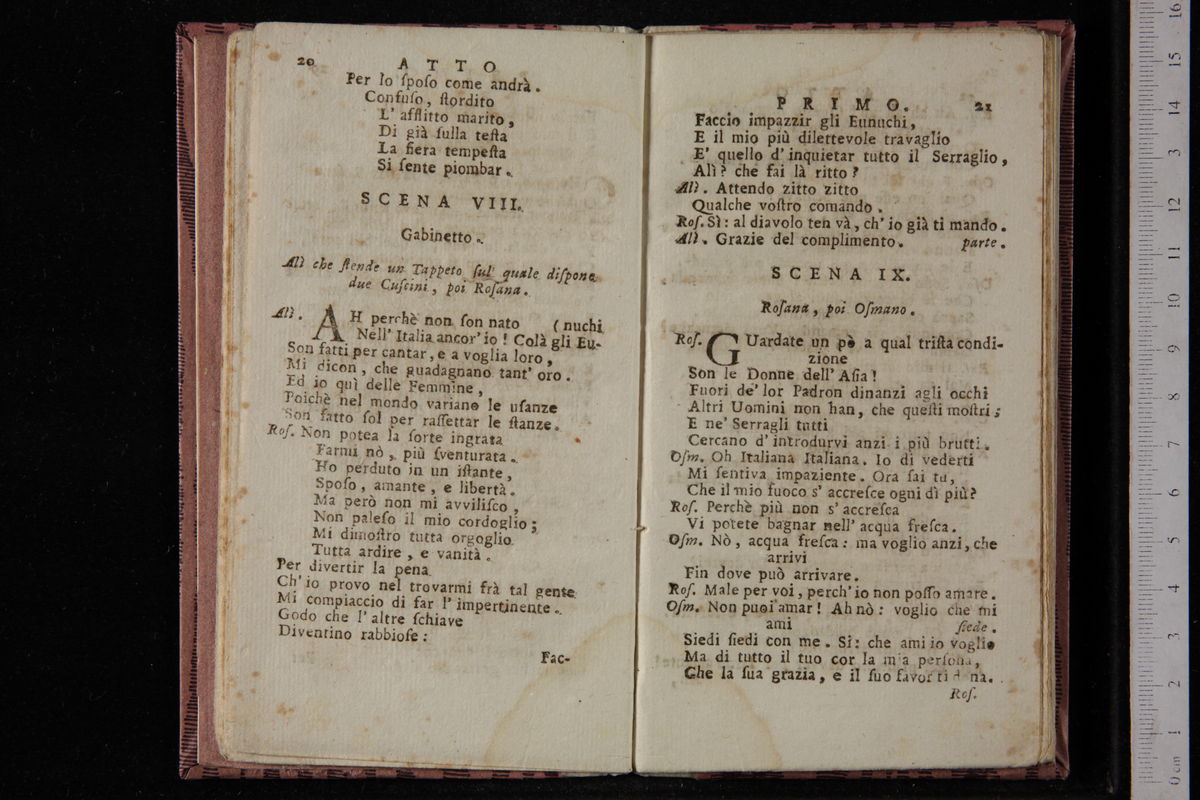 20 ATTO
Per lo ſpoſo come andrà.
Confuſo, ſtordito
L' afflitto marito,
Di già ſulla teſta
La fiera tempeſta
Si ſente piombar.
SCENA VIII.
Gabinetto.
Alì che ſtende un Tappeto ſul quale diſpone
due Cuſcini, poi Roſana.
Alì. AH perchè non ſon nato (nuchi
Nell' Italia ancor' io! Colà gli Eu-
Son fatti per cantar, e a voglia loro,
Mi dicon, che guadagnano tant' oro.
Ed io quì delle Femmine,
Poichè nel mondo variano le uſanze
Son fatto ſol per raſſettar le ſtanze.
Roſ. Non potea la ſorte ingrata
Farmi nò, più ſventurata.
Ho perduto in un iſtante,
Spoſo, amante, e libertà.
Ma però non mi avviliſco,
Non paleſo il mio cordoglio;
Mi dimoſtro tutta orgoglio
Tutta ardire, e vanità.
Per divertir la pena
Ch' io provo nel trovarmi frà tal gente
Mi compiaccio di far l' impertinente.
Godo che l' altre ſchiave
Diventino rabbioſe:
Fac-
PRIMO. 21
Faccio impazzir gli Eunuchi,
E il mio più dilettevole travaglio
E' quello d' inquietar tutto il Serraglio,
Alì? che fai là ritto?
Alì. Attendo zitto zitto
Qualche voſtro comando.
Roſ. Sì: al diavolo ten và, ch' io già ti mando.
Alì. Grazie del complimento. parte.
SCENA IX.
Roſana, poi Oſmano.
Roſ. GUardate un pò a qual triſta condi-
zione
Son le Donne dell' Aſia!
Fuori de' lor Padron dinanzi agli occhi
Altri Uomini non han, che queſti moſtri;
E ne' Serragli tutti
Cercano d' introdurvi anzi i più brutti.
Oſm. Oh Italiana Italiana. Io di vederti
Mi ſentiva impaziente. Ora ſai tu,
Che il mio fuoco s' accreſce ogni dì più?
Roſ. Perchè più non s' accreſca
Vi potete bagnar nell' acqua freſca.
Oſm. Nò, acqua freſca: ma voglio anzi, che
arrivi
Fin dove può arrivare.
Roſ. Male per voi, perch' io non poſſo amare.
Oſm. Non puoi amar! Ah nò: voglio che mi
ami ſiede.
Siedi ſiedi con me. Sì: che ami io voglio
Ma di tutto il tuo cor la mia perſona,
Che la ſua grazia, e il ſuo favor ti dona.
Roſ.